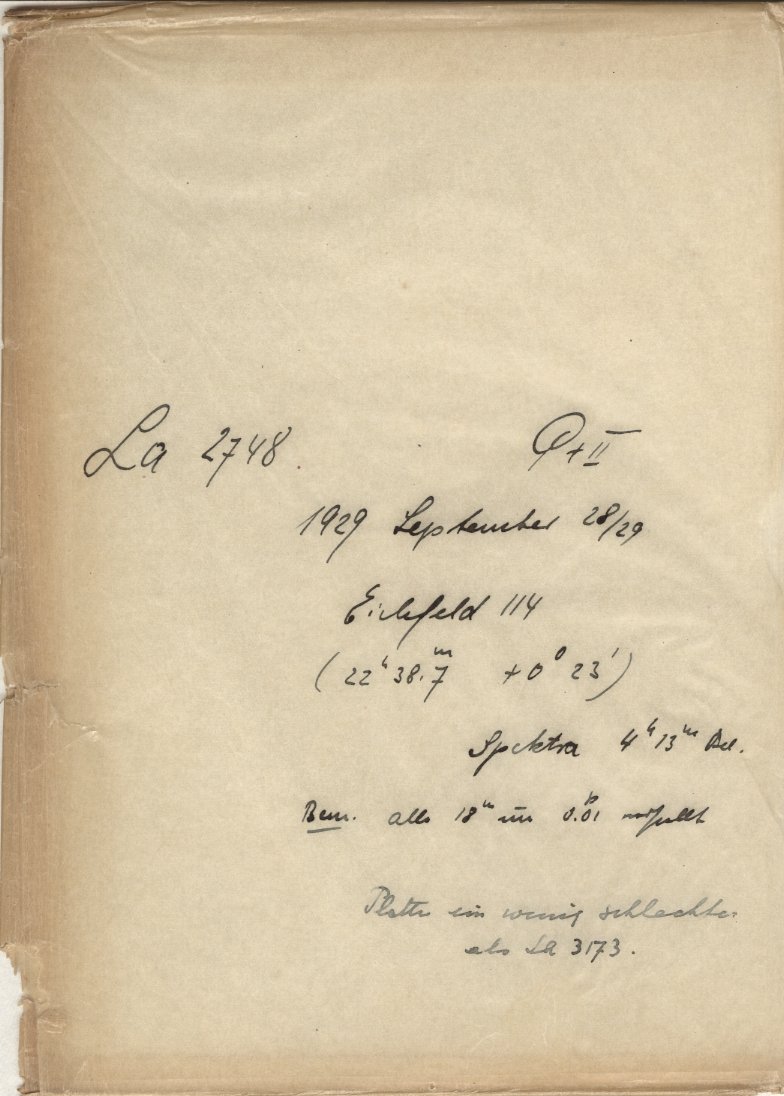 La 2748 Q+II
1929 September 28/29
Eichfeld 114
(22ʰ38.ᵐ7 +0⁰ 23')
Spektra 4ʰ13ᵐ Bel.
Bem. alle 18ᵐ um
Platte ein wenig schlechter
als La 3173.